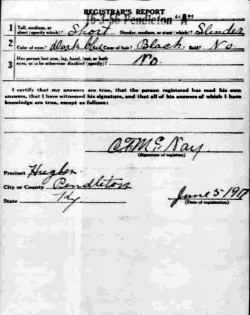 REGISTRAR'S REPORT
16-3-56 Pendleton "A"
1 Tall, medium, or short (specify which)? Short Slender, medium, or stout (which)? Slender
2 Color of eyes? Dark Color of hair? Black Bald? No
3 Has person lost arm, leg, hand, foot, or both eyes, or is he otherwise disabled (specify)? No.
I certify that my answers are true, that the person registered has read his own
answers, that I have witnessed his signature, and that all of his answers of which I have
knowledge are true, except as follows:
(Signature of registrar)
Precinct Hughes
City or County Pendleton
State Ky
June 5-1917
(Date of registration)